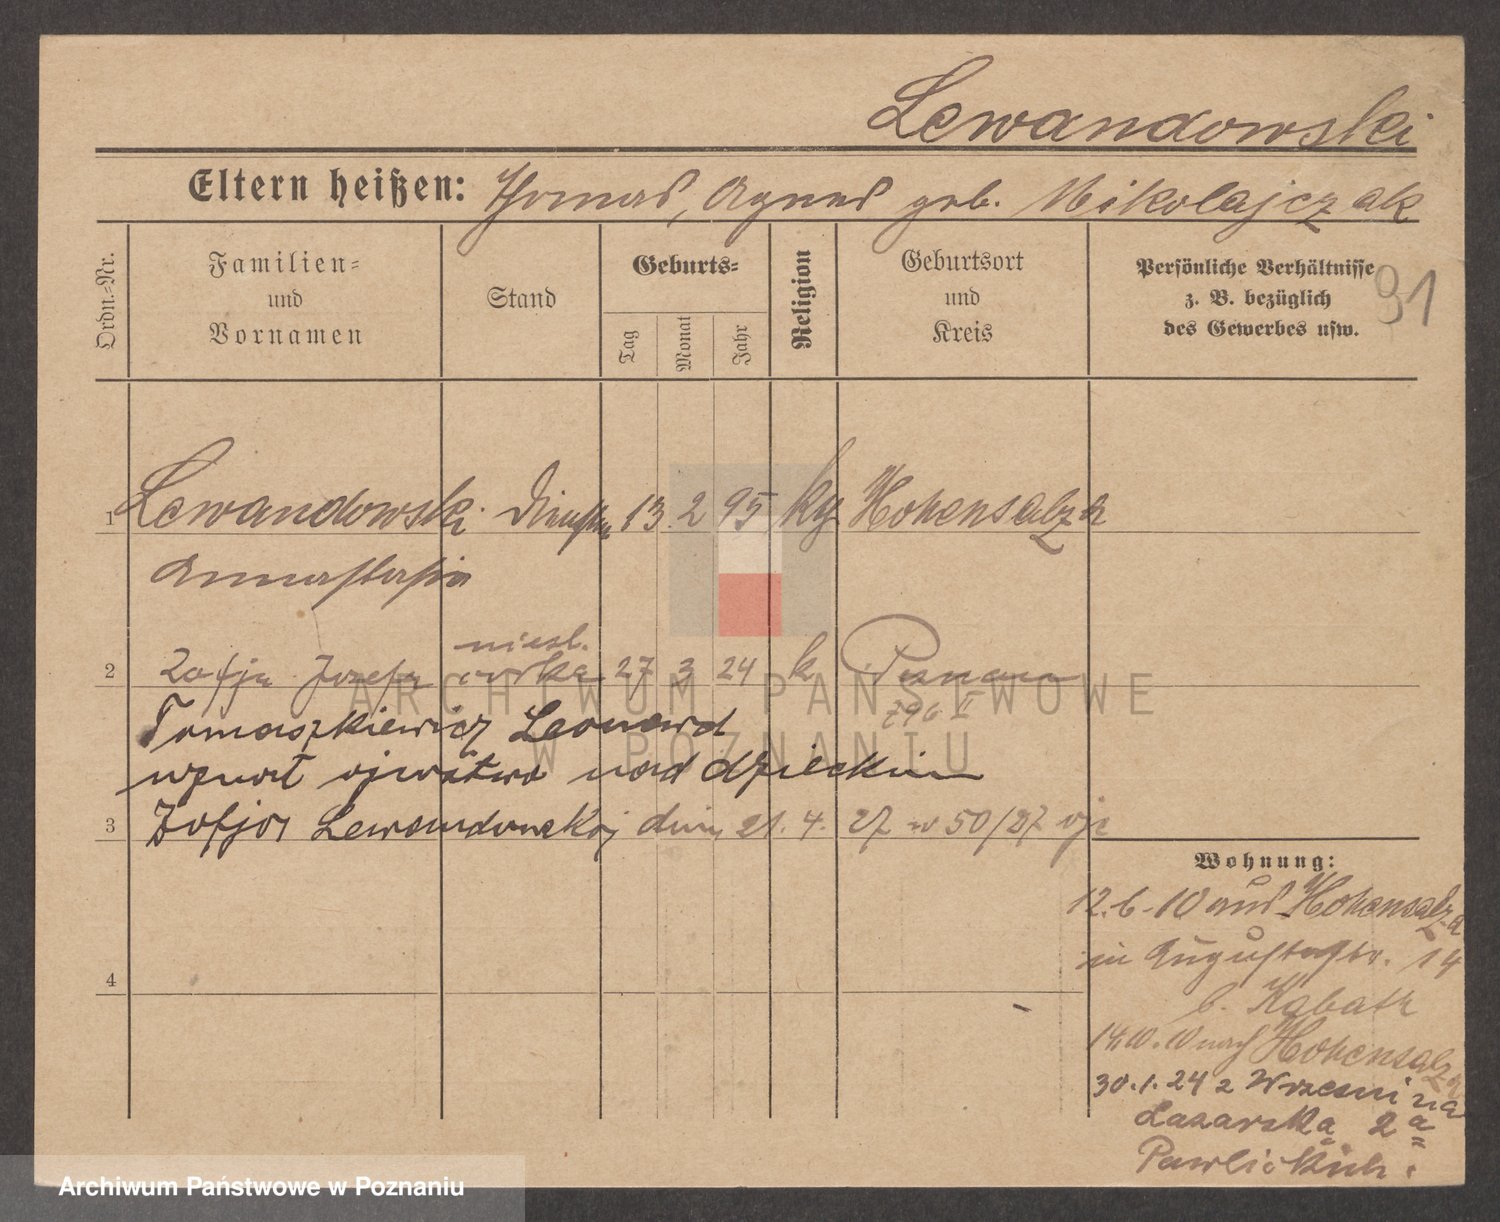 Lewandowski
Eltern heißen: Thomas, Agnes geb. Mikolajczak
Ordn.-Nr.
Familien- und Vornamen
Stand
Geburts-
Tag
Monat
Jahr
Religion
Geburtsort und Kreis
Persönliche Verhältnisse z. B. bezüglich des Gewerbes usw.
91
1 Lewandowski 13 2 95 kg Hohensalza
Annastasia
nieśl.
2 Zofja Jozefa córka 27 3 24 k Poznań
Tomaszkiewicz Leonard
uznał ojcostwo nad dzieckiem
3 Zofją Lewandowską dnia 21. 4. 27 w 50/27
4
Wohnung:
12.6.10 aus Hohensalza
in Augustastr. 14
b. Kabath
14.10.10 nach Hohensalza
30.1.24 z Wrześni na
Łazarska 2a
Pawlickich.
ARCHIWUM PAŃSTWOWE
W POZNANIU
Archiwum Państwowe w Poznaniu